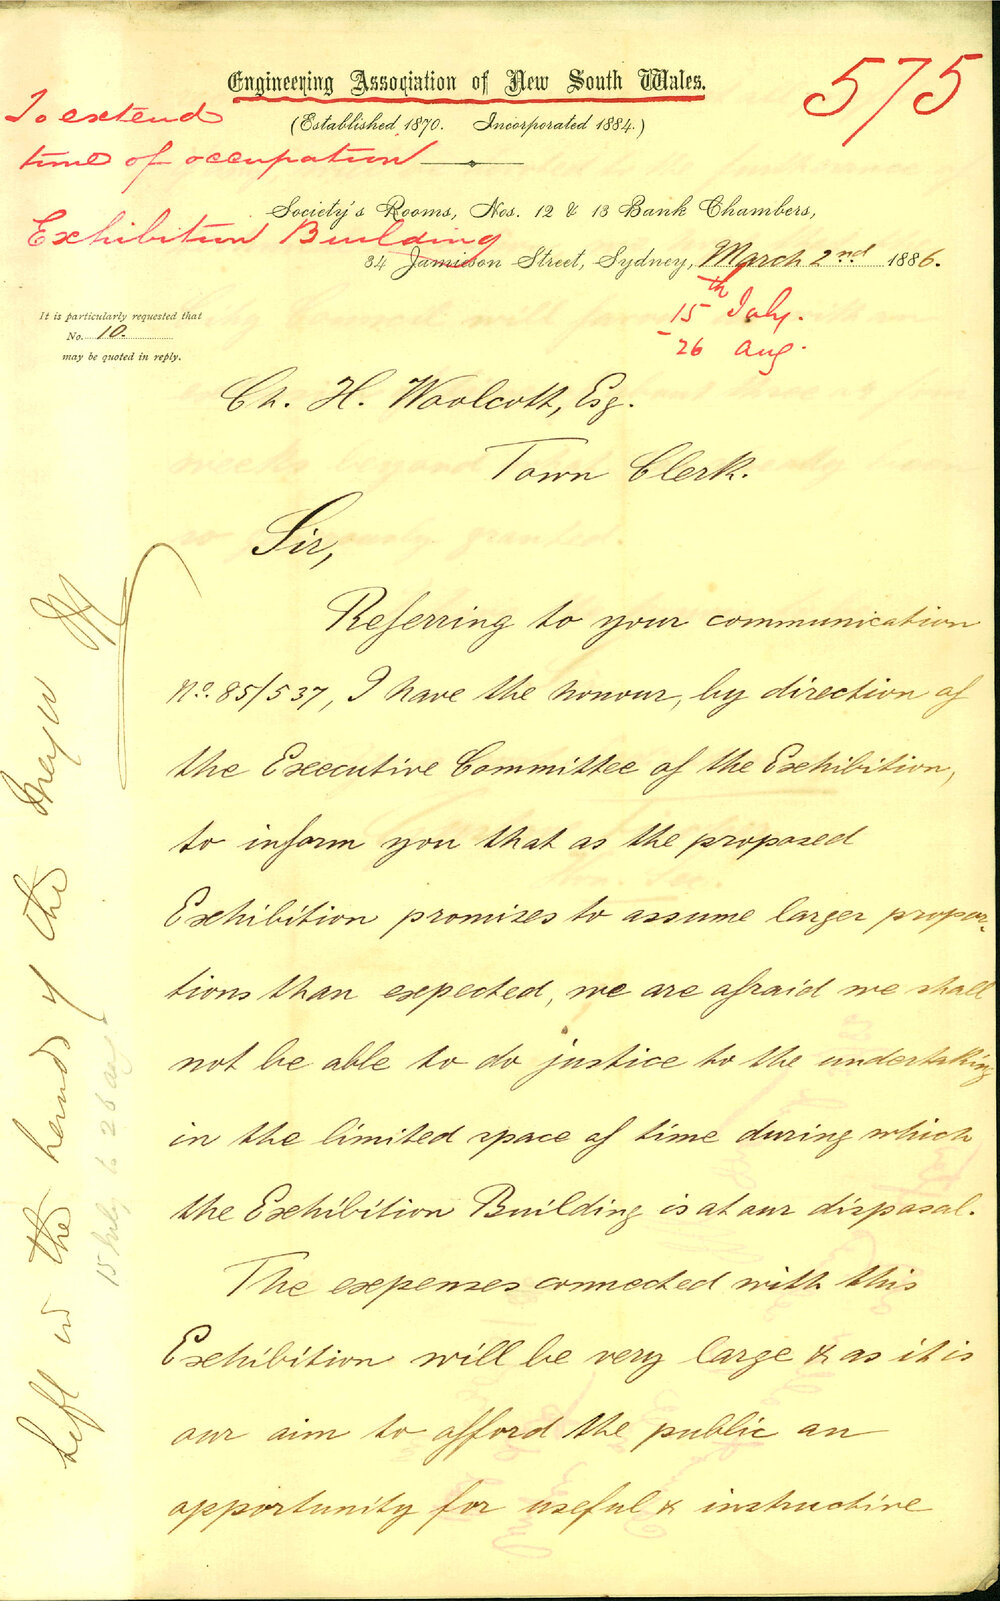 575
Engineering Association of New South Wales.
(Established 1870. Incorporated 1884.)
To extend
time of occupation
Exhibition Building
Society's Rooms, Nos. 12 & 13 Bank Chambers,
34 Jamieson Street, Sydney, March 2nd 1886.
15th July.
26 Aug.
It is particularly requested that
No. 10.
may be quoted in reply.
Ch. H. Woolcott, Esq.
Town Clerk.
Sir,
Referring to your communication
No. 85/537, I have the honour, by direction of
the Executive Committee of the Exhibition,
to inform you that as the proposed
Exhibition promises to assume larger propor-
tions than expected, we are afraid we shall
not be able to do justice to the undertaking
in the limited space of time during which
the Exhibition Building is at our disposal.
The expenses connected with this
Exhibition will be very large & as it is
our aim to afford the public an
opportunity for useful & instructive
Left in the hands of the Mayor
15 July to 26 Aug